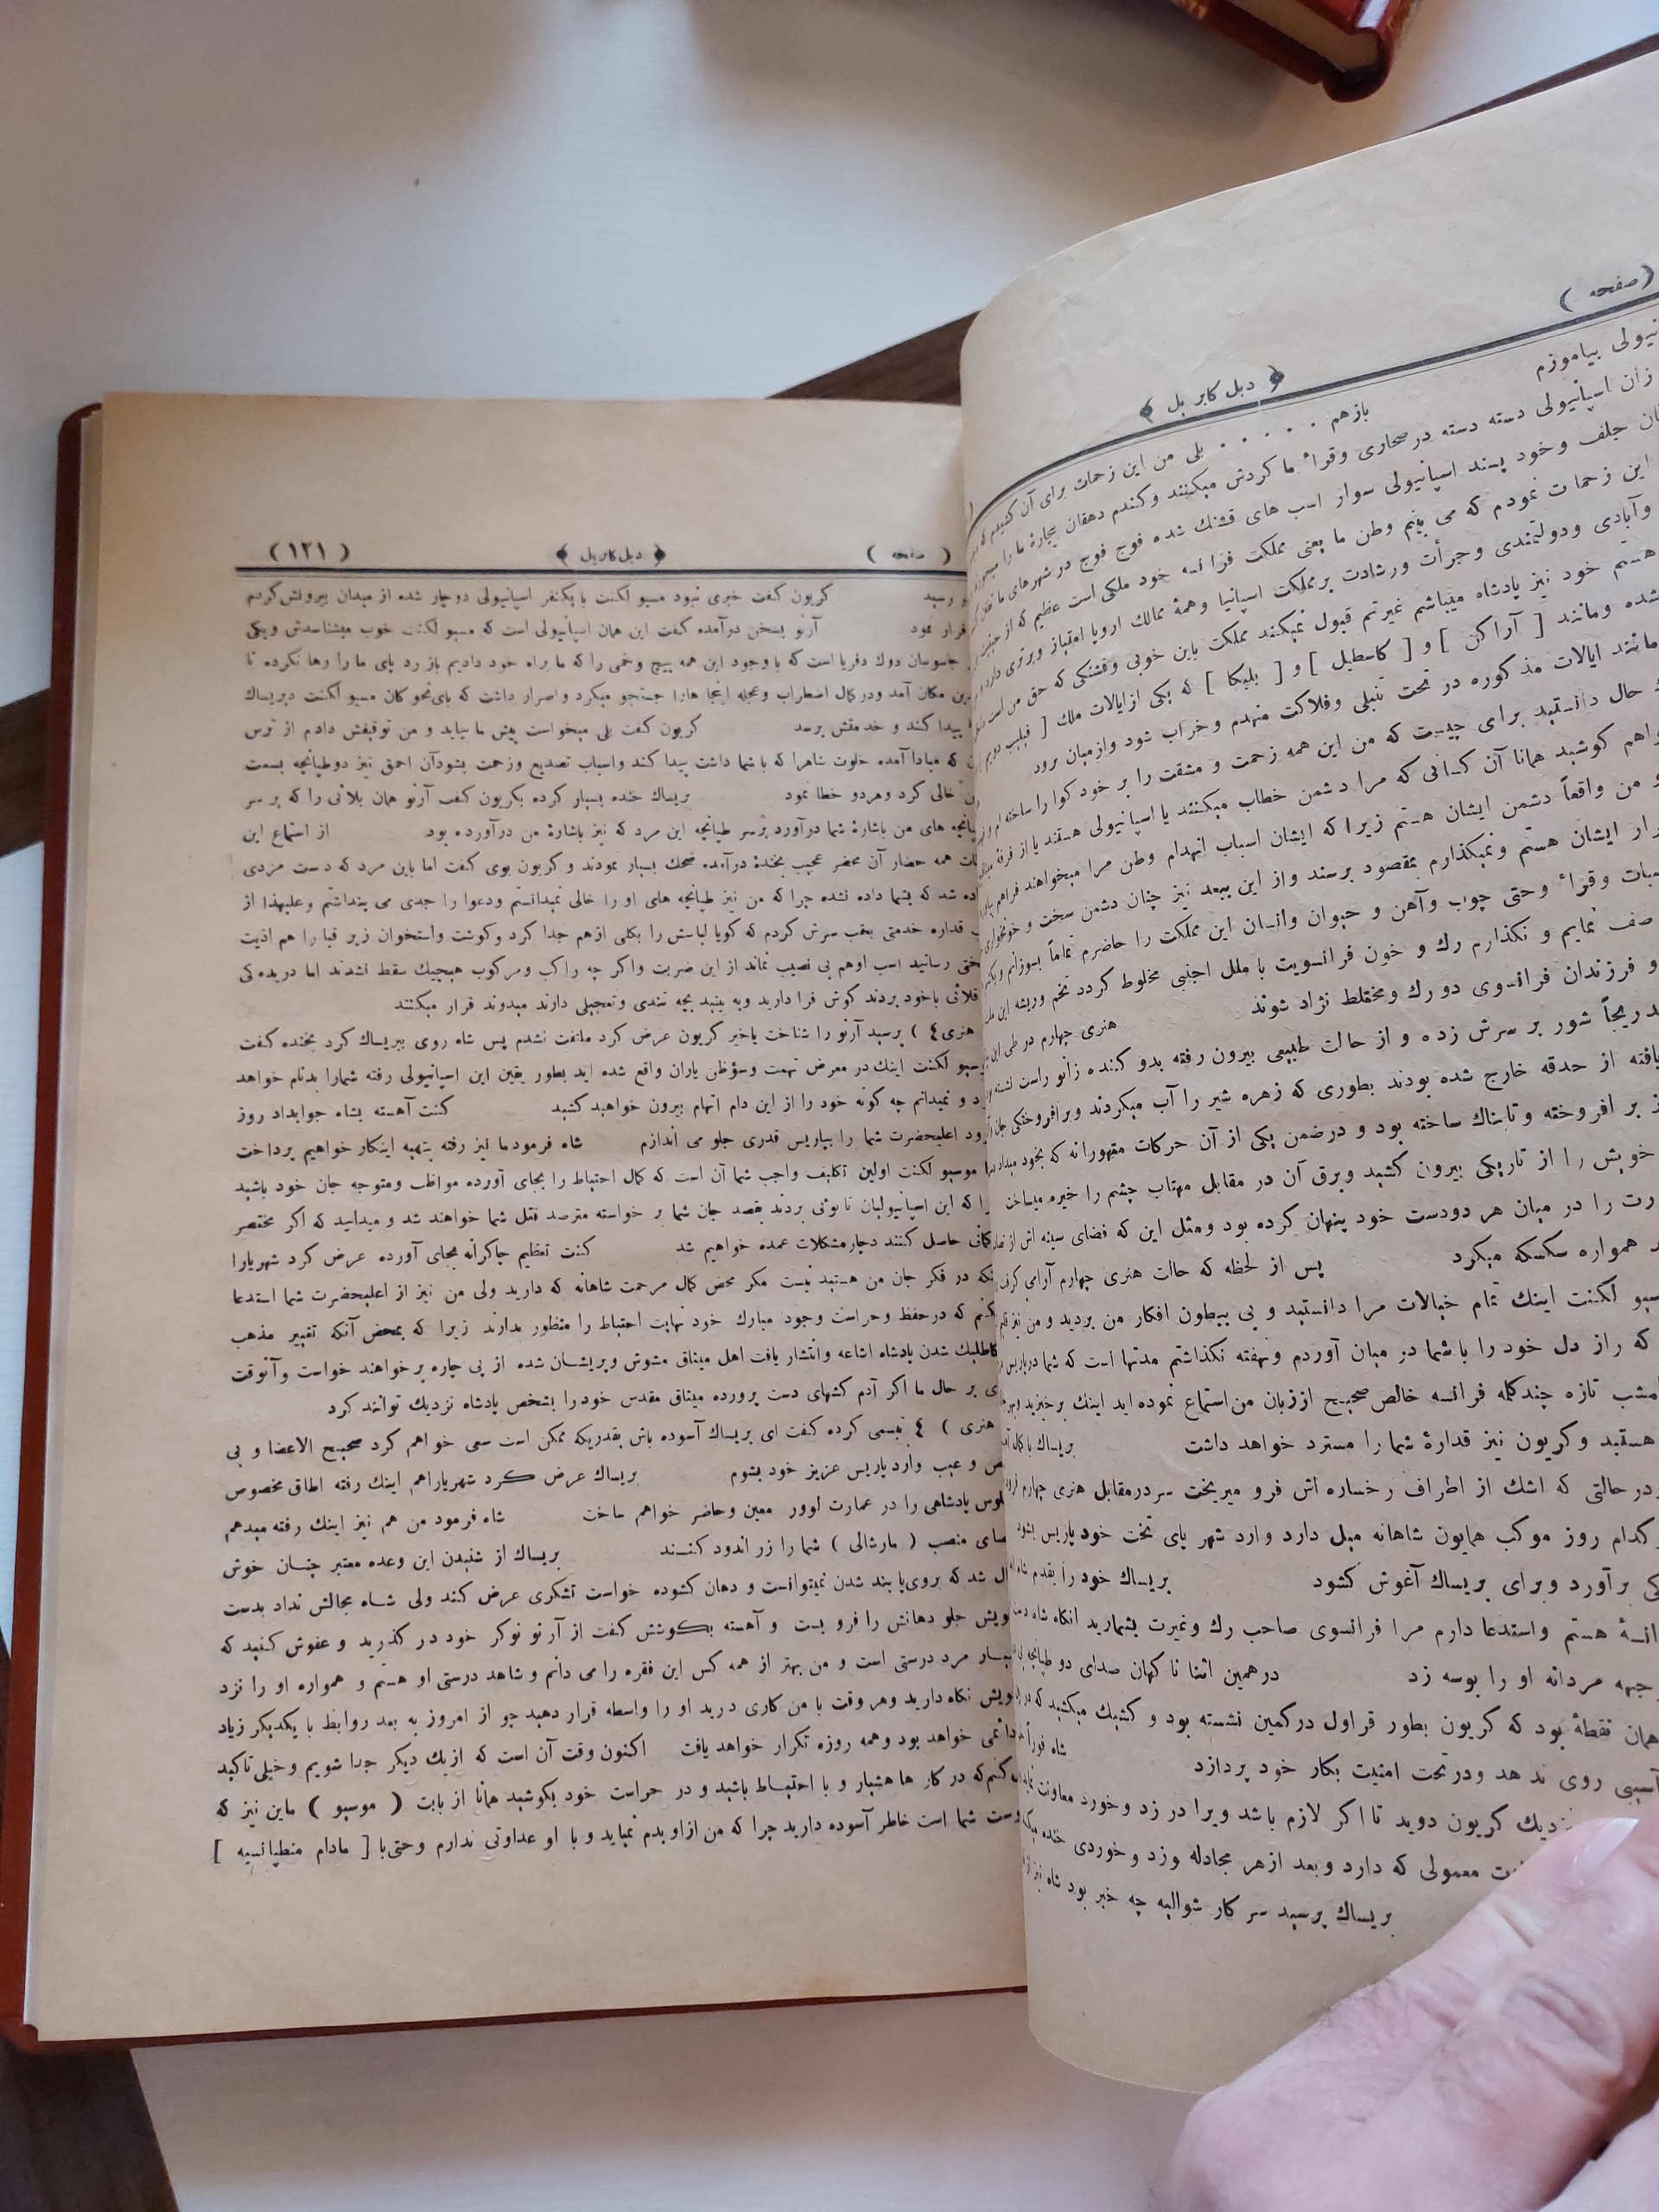 ( صفحه )
﴿ دبل کابر یل ﴾
نیولی بیاموزم
بازهم . . . . . بلی من این زحمات برای آن کشیدم که
زنان اسپانیولی دسته دسته در صحاری وقراء ما کردش میکنند وکندم دهقان بیچارهٔ ما را
جلف وخود پسند اسپانیولی سوار اسب های قشنك شده فوج فوج در شهرهای ما
این زحمات نمودم که می بینم وطن ما یعنی مملکت فرانسه خود ملکی است عظیم که از
وآبادی ودولتمندی وجرأت ورشادت برمملکت اسپانیا وهمهٔ ممالك اروپا امتیاز وبرتری دارد
هستم خود نیز پادشاه میباشم غیرتم قبول نمیکند مملکت باین خوبی وقشنکی که حق من است
شده ومانند [ آراکن ] و [ کاسطیل ] و [ بلیکا ] که یکی از ایالات ملك [ فیلیپ دویم
مانند ایالات مذکوره در تحت تنبلی وفلاکت منهدم وخراب شود وازمیان برود
حال دانستید برای چیست که من این همه زحمت و مشقت را بر خود کوارا ساخته ام
کوشید همانا آن کسانی که مرا دشمن خطاب میکنند یا اسپانیولی هستند یا از فرقهٔ
و من واقعاً دشمن ایشان هستم زیرا که ایشان اسباب انهدام وطن مرا میخواهند فراهم
ایشان هستم ونمیکذارم بمقصود برسند واز این ببعد نیز چنان دشمن سخت و خونخواری
وقراء وحتی چوب وآهن و حیوان وانسان این مملکت را حاضرم تماماً بسوزانم
صف نمایم و نکذارم رك و خون فرانسویت با ملل اجنبی مخلوط کردد تخم وریشه این
و فرزندان فرانسوی دو رك ومختلط نژاد شوند
هنری چهارم در طی این
شور بر سرش زده و از حالت طبیعی بیرون رفته بدو کننده زانو راست نشسته
یافته از حدقه خارج شده بودند بطوری که زهره شیر را آب میکردند وبرافروختکی
بر افروخته و تابناك ساخته بود و درضمن یکی از آن حرکات مقهورانه که بخود میداد
خویش را از تاریکی بیرون کشید وبرق آن در مقابل مهتاب چشم را خیره میساخت
را در میان هر دودست خود پنهان کرده بود ومثل این که فضای سینه اش از
همواره سکسکه میکرد
پس از لحظه که حالت هنری چهارم آرامی کرفت
لکنت اینك تمام خیالات مرا دانستید و بی ببطون افکار من بردید و من نیز
که راز دل خود را باشما در میان آوردم ونهفته نکذاشتم مدتها است که شما
تازه چند کله فرانسه خالص صحیح اززبان من استماع نموده اید اینك برخیزید
هستید وکریون نیز قدارهٔ شما را مسترد خواهد داشت
بریساك با کمال
حالتی که اشك از اطراف رخساره اش فرو میریخت سردرمقابل هنری چهارم
کدام روز موکب همایون شاهانه میل دارد وارد شهر پای تخت خود پاریس بشود
برآورد وبرای بریساك آغوش کشود
بریساك خود را بقدم شاه
هستم واستدعا دارم مرا فرانسوی صاحب رك وغیرت بشمارید انکاه شاه
جبهه مردانه او را بوسه زد
درهمین اثنا ناکهان صدای دو طپانچه
همان نقطهٔ بود که کریون بطور قراول درکمین نشسته بود و کشیك میکشید که
شاه فوراً
آسیبی روی ندهد ودرتحت امنیت بکار خود پردازد
کریون دوید تا اکر لازم باشد ویرا در زد وخورد معاونت نماید
معمولی که دارد وبعد ازهر مجادله وزد وخوردی خنده
بریساك پرسید سرکار شوالیه چه خبر بود شاه نیز
( صفحه )
﴿ دبل کابریل ﴾
( ۱۲۱ )
رسید
کریون کفت خبری نبود مسیو لکنت با یکنفر اسپانیولی دوچار شده از میدان بیرونش کردم
فرار نمود
آرنو بسخن درآمده کفت این همان اسپانیولی است که مسیو لکنت خوب میشناسدش ویکی
جاسوسان دوك دفریا است که با وجود این همه پیچ وخمی را که ما براه خود دادیم باز رد پای ما را رها نکرده تا
مکان آمد ودرکمال اضطراب وعجله اینجا هارا جستجو میکرد و اصرار داشت که بای نحو کان مسیو لکنت دبریساك
پیدا کند و خدمتش برسد
کریون کفت بلی میخواست پیش ما بیاید و من توقیفش دادم از ترس
که مبادا آمده خلوت شاهرا که با شما داشت پیدا کند واسباب تصدیع وزحمت بشودآن احمق نیز دوطپانچه بسمت
خالی کرد وهردو خطا نمود
بریساك خنده بسیار کرده بکریون کفت آرنو همان بلائی را که بر سر
های من باشارهٔ شما درآورد برسر طپانچه این مرد که نیز باشارهٔ من درآورده بود
از استماع این
همه حضار آن محضر عجیب بخندهٔ درآمده ضحك بسیار نمودند و کریون بوی کفت اما باین مرد که دست مزدی
داده شد که بشما داده نشده چرا که من نیز طپانچه های او را خالی نمیدانستم ودعوا را جدی می پنداشتم وعلیهذا از
قداره خدمتی بعقب سرش کردم که کویا لباسش را بکلی ازهم جدا کرد وکوشت واستخوان زیر قبا را هم اذیت
رسانید اسب اوهم بی نصیب نماند از این ضربت واکر چه راکب ومرکوب هیچیك سقط نشدند اما دریده کی
باخود بردند کوش فرا دارید وبه بینید بچه تندی وتعجیلی دارند میدوند فرار میکنند
هنری ٤ ) پرسید آرنو را شناخت یاخیر کریون عرض کرد ملتفت نشدم پس شاه روی ببریساك کرد بخنده کفت
لکنت اینك در معرض تهمت وسؤظن یاران واقع شده اید بطور یقین این اسپانیولی رفته شمارا بدنام خواهد
و نمیدانم چه کونه خود را از این دام اتهام بیرون خواهید کشید
کنت آهسته بشاه جوابداد روز
اعلیحضرت شما را بپاریس قدری جلو می اندازم
شاه فرمود ما نیز رفته بتهیه اینکار خواهیم پرداخت
موسیو لکنت اولین تکلیف واجب شما آن است که کمال احتیاط را بجای آورده مواظب ومتوجه جان خود باشید
که این اسپانیولیان نانوئی بردند بقصد جان شما بر خواسته مترصد قتل شما خواهند شد و میدانید که اکر مختصر
حاصل کنند دچار مشکلات عمده خواهیم شد
کنت تعظیم چاکرانه بجای آورده عرض کرد شهریارا
در فکر جان من هستید نیست مکر محض کمال مرحمت شاهانه که دارید ولی من نیز از اعلیحضرت شما استدعا
که درحفظ وحراست وجود مبارك خود نهایت احتیاط را منظور بدارند زیرا که بمحض آنکه تغییر مذهب
شدن پادشاه اشاعه وانتشار یافت اهل میثاق مشوش وپریشان شده از بی چاره برخواهند خواست وآنوقت
بر حال ما اکر آدم کشهای دست پرورده میثاق مقدس خود را بشخص پادشاه نزدیك توانند کرد
هنری ) ٤ تبسمی کرده کفت ای بریساك آسوده باش بقدریکه ممکن است سعی خواهم کرد صحیح الاعضا و بی
و عیب وارد پاریس عزیز خود بشوم
بریساك عرض کرد شهریاراهم اینك رفته اطاق مخصوص
پادشاهی را در عمارت لوور معین وحاضر خواهم ساخت
شاه فرمود من هم نیز اینك رفته میدهم
منصب ( مارشالی ) شما را زر اندود کنند
بریساك از شنیدن این وعده معتبر چنان خوش
شد که بروی پا بند شدن نمیتوانست و دهان کشوده خواست تشکری عرض کند ولی شاه مجالش نداد بدست
خویش جلو دهانش را فرو بست و آهسته بکوشش کفت از آرنو نوکر خود در کذرید و عفوش کنید که
بسیار مرد درستی است و من بهتر از همه کس این فقره را می دانم و شاهد درستی او هستم و همواره او را نزد
خویش نکاه دارید وهر وقت با من کاری درید او را واسطه قرار دهید چو از امروز به بعد روابط با یکدیکر زیاد
دائمی خواهد بود وهمه روزه تکرار خواهد یافت
اکنون وقت آن است که از یك دیکر جدا شویم وخیلی تاکید
که در کار ها هشیار و با احتیاط باشید و در حراست خود بکوشید همانا از بابت ( موسیو ) ماین نیز که
دوست شما است خاطر آسوده دارید چرا که من ازاو بدم نمیاید و با او عداوتی ندارم وحتی با [ مادام منطپانسیه ]